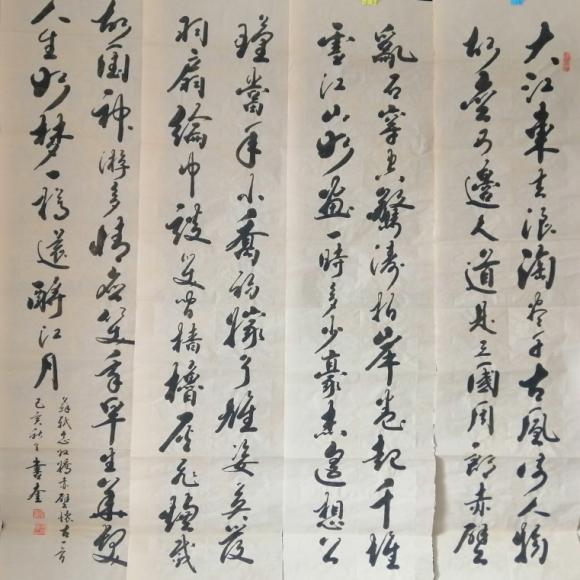 大江東去浪淘盡千古風流人物
故壘西邊人道是三國周郎赤壁
亂石穿空驚濤拍岸卷起千堆
雪江山如畫一時多少豪杰遙想公
瑾當年小喬初嫁了雄姿英發
羽扇綸巾談笑間檣櫓灰飛煙滅
故國神游多情應笑我早生華髮
人生如夢一樽還酹江月
蘇軾念奴嬌赤壁懷古一首
己亥秋月書奎